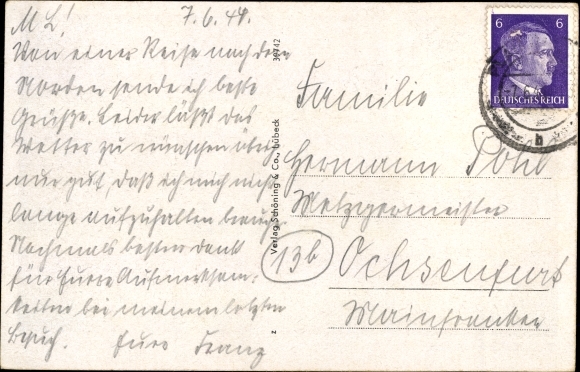 M L! 7.6.41.
Von einer Reise nach dem
Norden sende ich beste
Grüße. Leider läßt das
Wetter zu wünschen übrig
nur gut, daß ich mich nicht
lange aufzuhalten brauche.
Nochmals besten Dank
für Euere Aufmerksam-
keiten bei meinem letzten
Besuch. Eure Franz
Verlag Schöning & Co., Lübeck
39742
z
6 6
DEUTSCHES REICH
b
Familie
Hermann Pohl
Metzgermeister
13b Ochsenfurt
Mainfranken